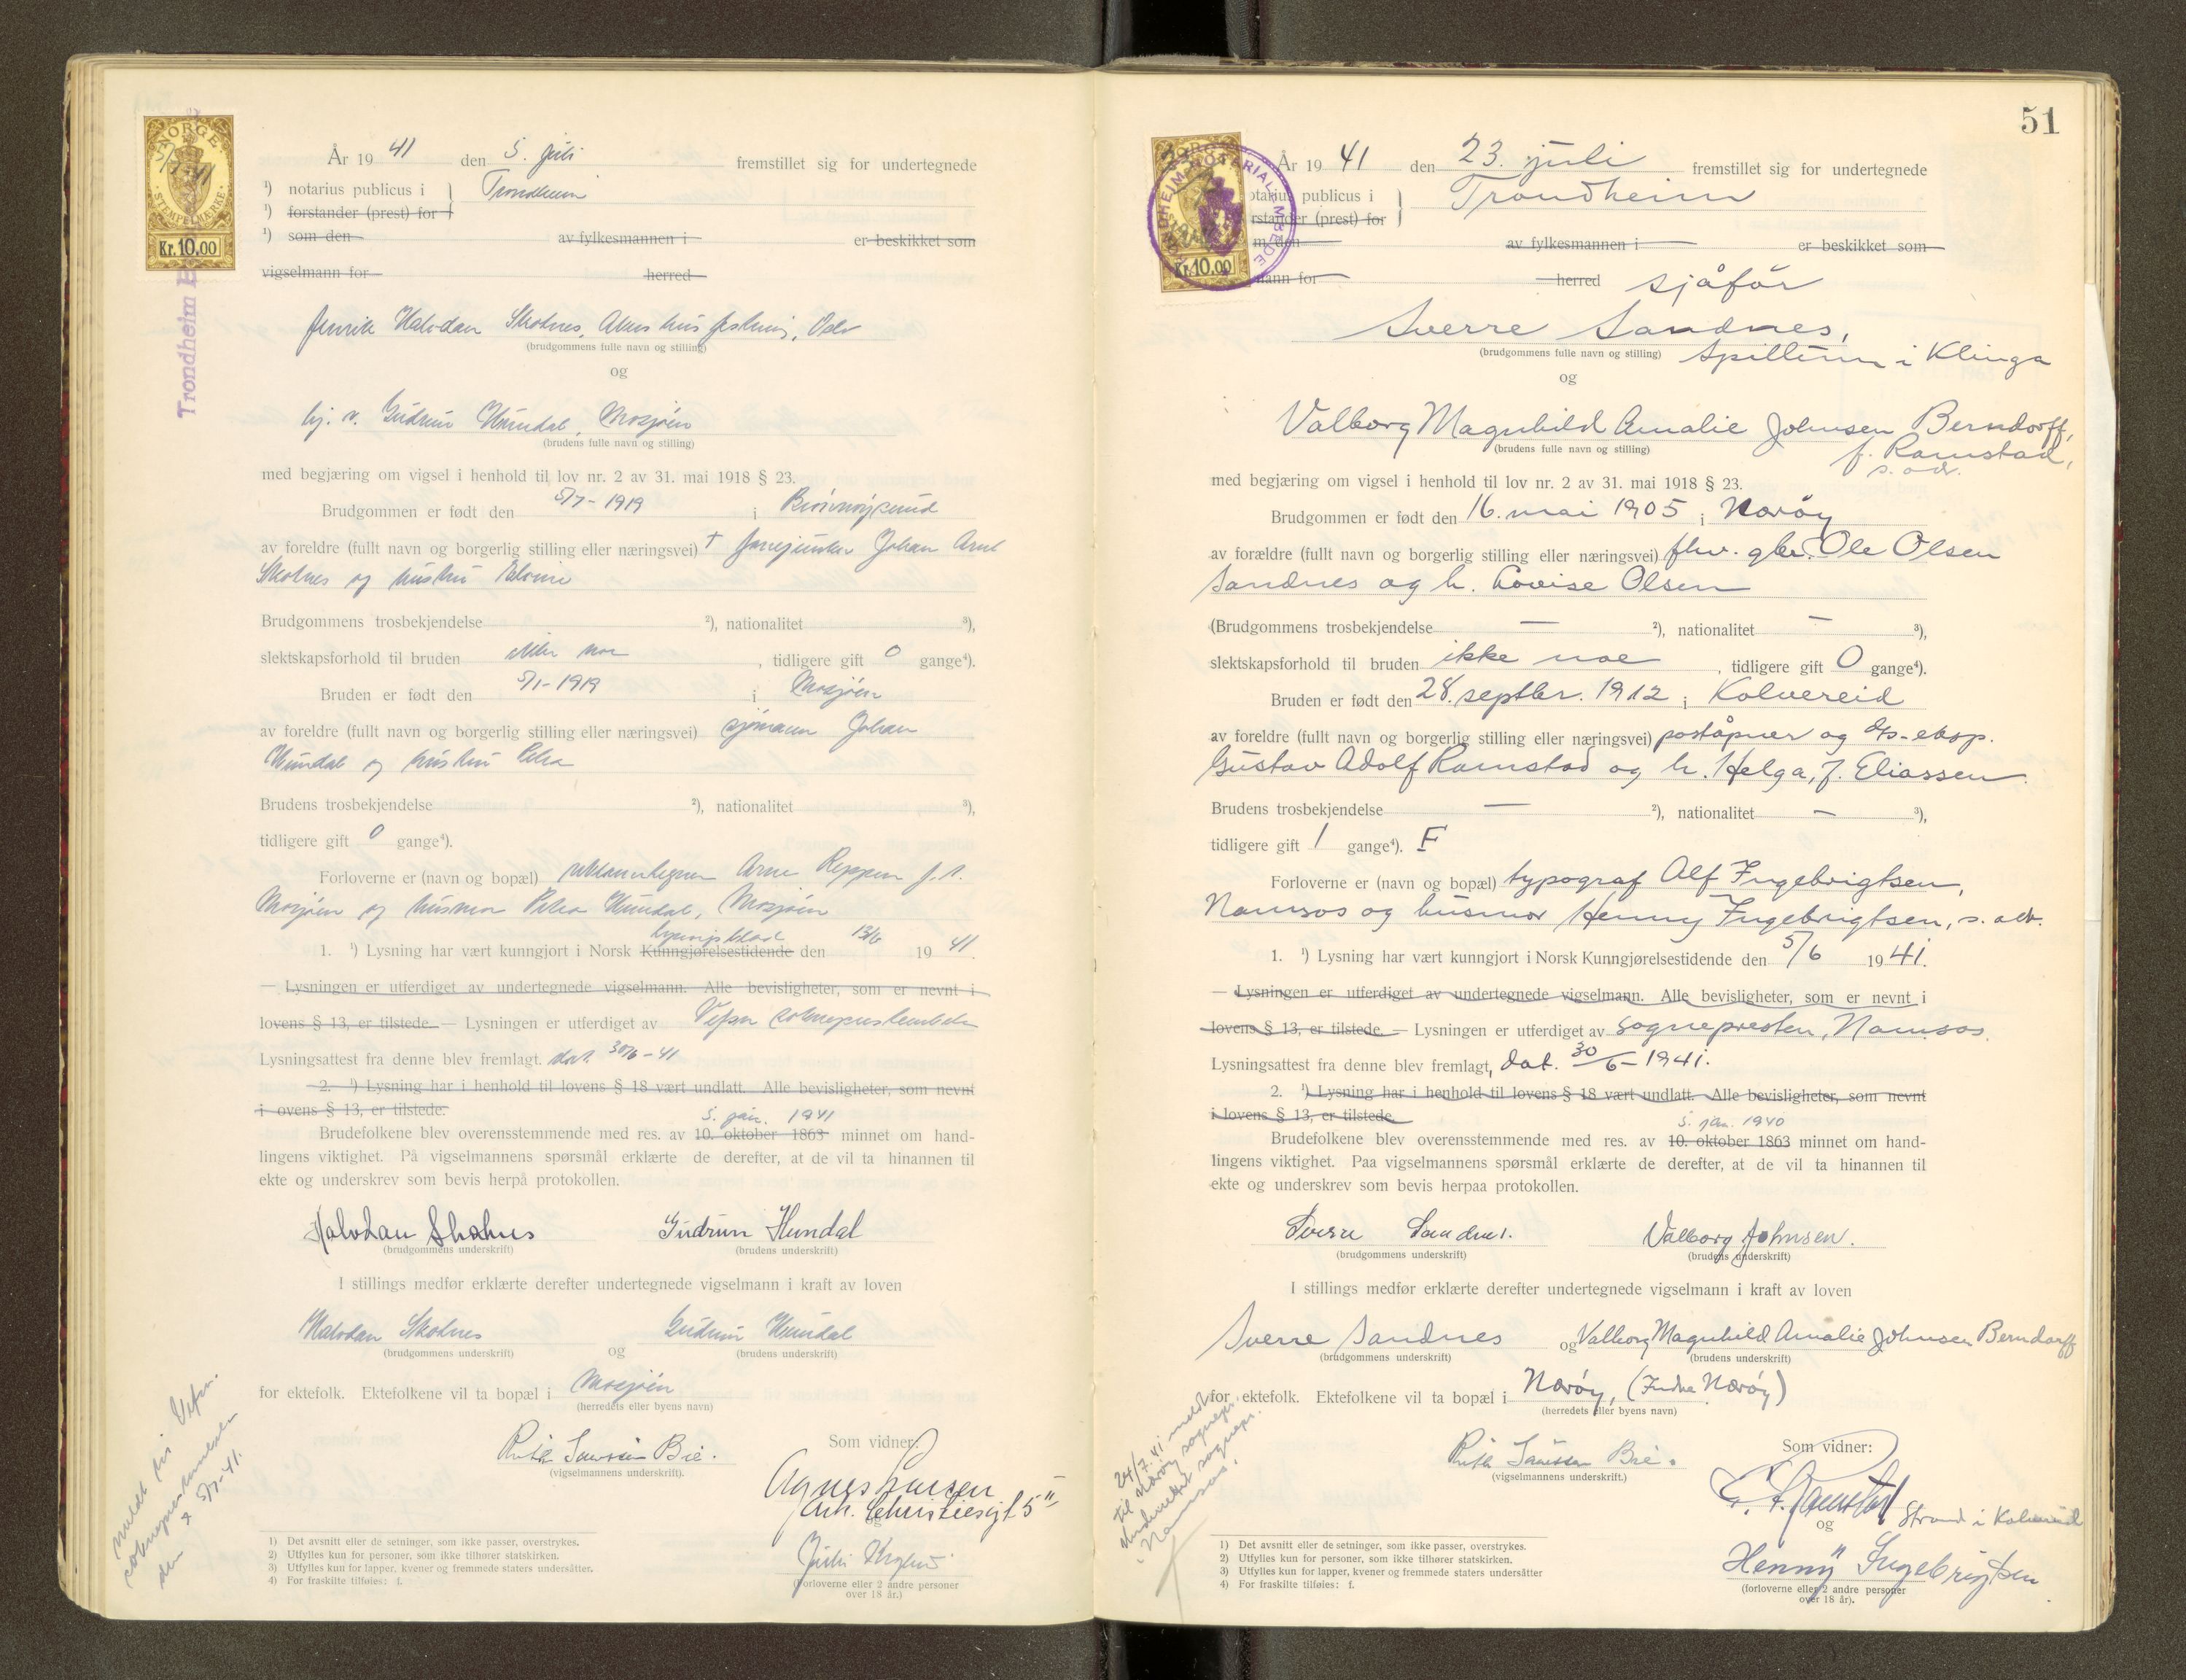 NORGE
5/7-41
STEMPELMERKE
Kr. 10.00
Trondheim
År 19 41 den 5. juli fremstillet sig for undertegnede
¹) notarius publicus i } Trondheim
¹) forstander (prest) for
¹) som den av fylkesmannen i er beskikket som
vigselmann for herred
Henrik Halvdan Skolnes, Akershus festning, Oslo
(brudgommens fulle navn og stilling)
og
hj. v. Gudrun Hundal, Mosjøen
(brudens fulle navn og stilling)
med begjæring om vigsel i henhold til lov nr. 2 av 31. mai 1918 § 23.
Brudgommen er født den 5/7-1919 i Brønnøysund
av foreldre (fullt navn og borgerlig stilling eller næringsvei) † Johan Arnt
Skolnes og hustru
Brudgommens trosbekjendelse ²), nationalitet ³),
slektskapsforhold til bruden ikke noe, tidligere gift 0 gange⁴).
Bruden er født den 5/1-1919 i Mosjøen
av foreldre (fullt navn og borgerlig stilling eller næringsvei) sjømann Johan
Hundal og hustru Petra
Brudens trosbekjendelse ²), nationalitet ³),
tidligere gift 0 gange⁴).
Forloverne er (navn og bopæl) reklametegner Arne Reppen f. t.
Mosjøen og husmor Petra Hundal, Mosjøen
lysningsblad
1. ¹) Lysning har vært kunngjort i Norsk Kunngjørelsestidende den 13/6 19 41.
— Lysningen er utferdiget av undertegnede vigselmann. Alle bevisligheter, som er nevnt i
lovens § 13, er tilstede. — Lysningen er utferdiget av Vefsn sokneprestembete
Lysningsattest fra denne blev fremlagt. dat. 30/6-41
2. ¹) Lysning har i henhold til lovens § 18 vært undlatt. Alle bevisligheter, som nevnt
i ovens § 13, er tilstede.
5. jan. 1941
Brudefolkene blev overensstemmende med res. av 10. oktober 1863 minnet om hand-
lingens viktighet. På vigselmannens spørsmål erklærte de derefter, at de vil ta hinannen til
ekte og underskrev som bevis herpå protokollen.
Halvdan Skolnes Gudrun Hundal
(brudgommens underskrift) (brudens underskrift)
I stillings medfør erklærte derefter undertegnede vigselmann i kraft av loven
Halvdan Skolnes og Gudrun Hundal
(brudgommens underskrift) (brudens underskrift)
for ektefolk. Ektefolkene vil ta bopæl i Mosjøen
(herredets eller byens navn)
Som vidner:
Bie.
(vigselmannens underskrift).
Agnes Larsen
Ark. Christiesgt 5"
og
(Forloverne eller 2 andre personer
over 18 år.)
meldt til Vefsn
sokneprestembete
den 5/7-41.
1) Det avsnitt eller de setninger, som ikke passer, overstrykes.
2) Utfylles kun for personer, som ikke tilhører statskirken.
3) Utfylles kun for lapper, kvener og fremmede staters undersåtter.
4) For fraskilte tilføies: f.
51
NORGE
Kr. 10.00
TRONDHEIM NOTARIALEMBEDE
År 19 41 den 23. juli fremstillet sig for undertegnede
otarius publicus i } Trondheim
rstander (prest) for
m den av fylkesmannen i er beskikket som
mann for herred sjåfør
Sverre Sandnes,
(brudgommens fulle navn og stilling) Spillum i Klinga
og
Valborg Magnhild Amalie Johnsen Berndorff,
(brudens fulle navn og stilling) f. Ramstad,
s. adr.
med begjæring om vigsel i henhold til lov nr. 2 av 31. mai 1918 § 23.
Brudgommen er født den 16. mai 1905 i Nærøy
av forældre (fullt navn og borgerlig stilling eller næringsvei) fhv. gbr. Ole Olsen
Sandnes og h. Lovise Olsen
(Brudgommens trosbekjendelse — ²), nationalitet — ³),
slektskapsforhold til bruden ikke noe, tidligere gift 0 gange⁴).
Bruden er født den 28. septbr. 1912 i Kolvereid
av foreldre (fullt navn og borgerlig stilling eller næringsvei) poståpner og d/s-eksp.
Gustav Adolf Ramstad og h. Helga, f. Eliassen
Brudens trosbekjendelse — ²), nationalitet — ³),
tidligere gift 1 gange⁴). F
Forloverne er (navn og bopæl) typograf Alf Ingebrigtsen,
Namsos og husmor Henny Ingebrigtsen, s. adr.
1. ¹) Lysning har vært kunngjort i Norsk Kunngjørelsestidende den 5/6 19 41.
— Lysningen er utferdiget av undertegnede vigselmann. Alle bevisligheter, som er nevnt i
lovens § 13, er tilstede. — Lysningen er utferdiget av sognepresten, Namsos.
Lysningsattest fra denne blev fremlagt, dat. 30/6-1941.
2. ¹) Lysning har i henhold til lovens § 18 vært undlatt. Alle bevisligheter, som nevnt
i lovens § 13, er tilstede
5. jan. 1940
Brudefolkene blev overensstemmende med res. av 10. oktober 1863 minnet om hand-
lingens viktighet. Paa vigselmannens spørsmål erklærte de derefter, at de vil ta hinannen til
ekte og underskrev som bevis herpaa protokollen.
Sverre Sandnes. Valborg Johnsen.
(brudgommens underskrift) (brudens underskrift)
I stillings medfør erklærte derefter undertegnede vigselmann i kraft av loven
Sverre Sandnes og Valborg Magnhild Amalie Johnsen Berndorff
(brudgommens underskrift) (brudens underskrift)
for ektefolk. Ektefolkene vil ta bopæl i Nærøy, (Indre Nærøy)
(herredets eller byens navn)
Som vidner:
Bie.
(vigselmannens underskrift.)
G. A. Ramstad Strand i Kolvereid
og
Henny Ingebrigtsen
(forloverne eller 2 andre personer
over 18 år).
24/7.41 meldt
til Nærøy sognepr.
underrettet sognepr.
i Namsos.
1) Det avsnitt eller de setninger, som ikke passer, overstrykes.
2) Utfylles kun for personer, som ikke tilhører statskirken.
3) Utfylles kun for lapper, kvener og fremmede staters undersåtter
4) For fraskilte tilføies: f.